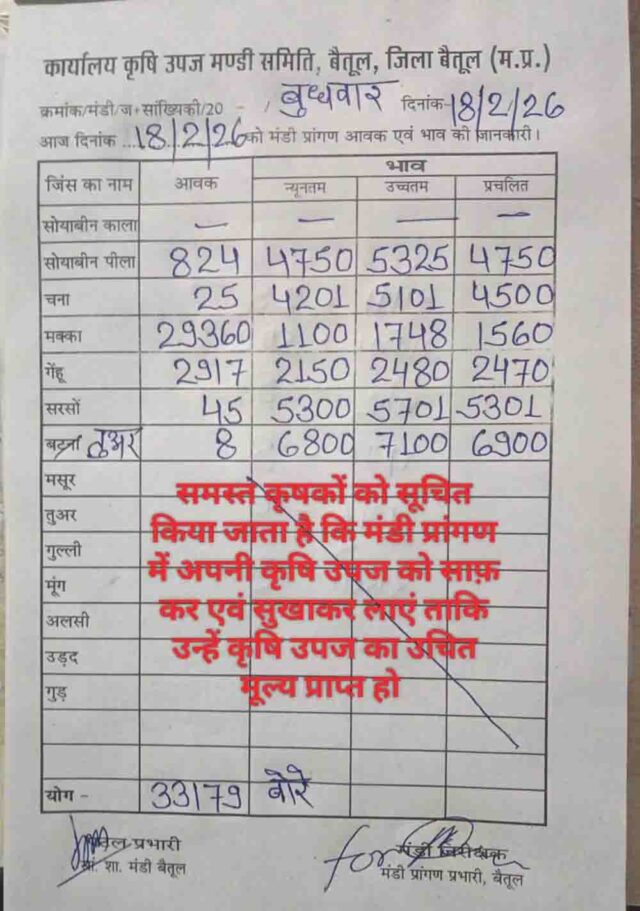 कार्यालय कृषि उपज मण्डी समिति, बैतूल, जिला बैतूल (म.प्र.)
क्रमांक/मंडी/ज+सांख्यिकी/20 - / बुधवार दिनांक-18/2/26
आज दिनांक ...18/2/26 को मंडी प्रांगण आवक एवं भाव की जानकारी।
जिंस का नाम आवक भाव
न्यूनतम उच्चतम प्रचलित
सोयाबीन काला — — — —
सोयाबीन पीला 824 4750 5325 4750
चना 25 4201 5101 4500
मक्का 29360 1100 1748 1560
गेंहू 2917 2150 2480 2470
सरसों 45 5300 5701 5301
बटना तुअर 8 6800 7100 6900
मसूर
तुअर
गुल्ली
मूंग
अलसी
उड़द
गुड़
समस्त कृषकों को सूचित
किया जाता है कि मंडी प्रांगण
में अपनी कृषि उपज को साफ़
कर एवं सुखाकर लाएं ताकि
उन्हें कृषि उपज का उचित
मूल्य प्राप्त हो
योग - 33179 बोरे
प्रभारी
शा. मंडी बैतूल
for मंडी निरीक्षक
मंडी प्रांगण प्रभारी, बैतूल